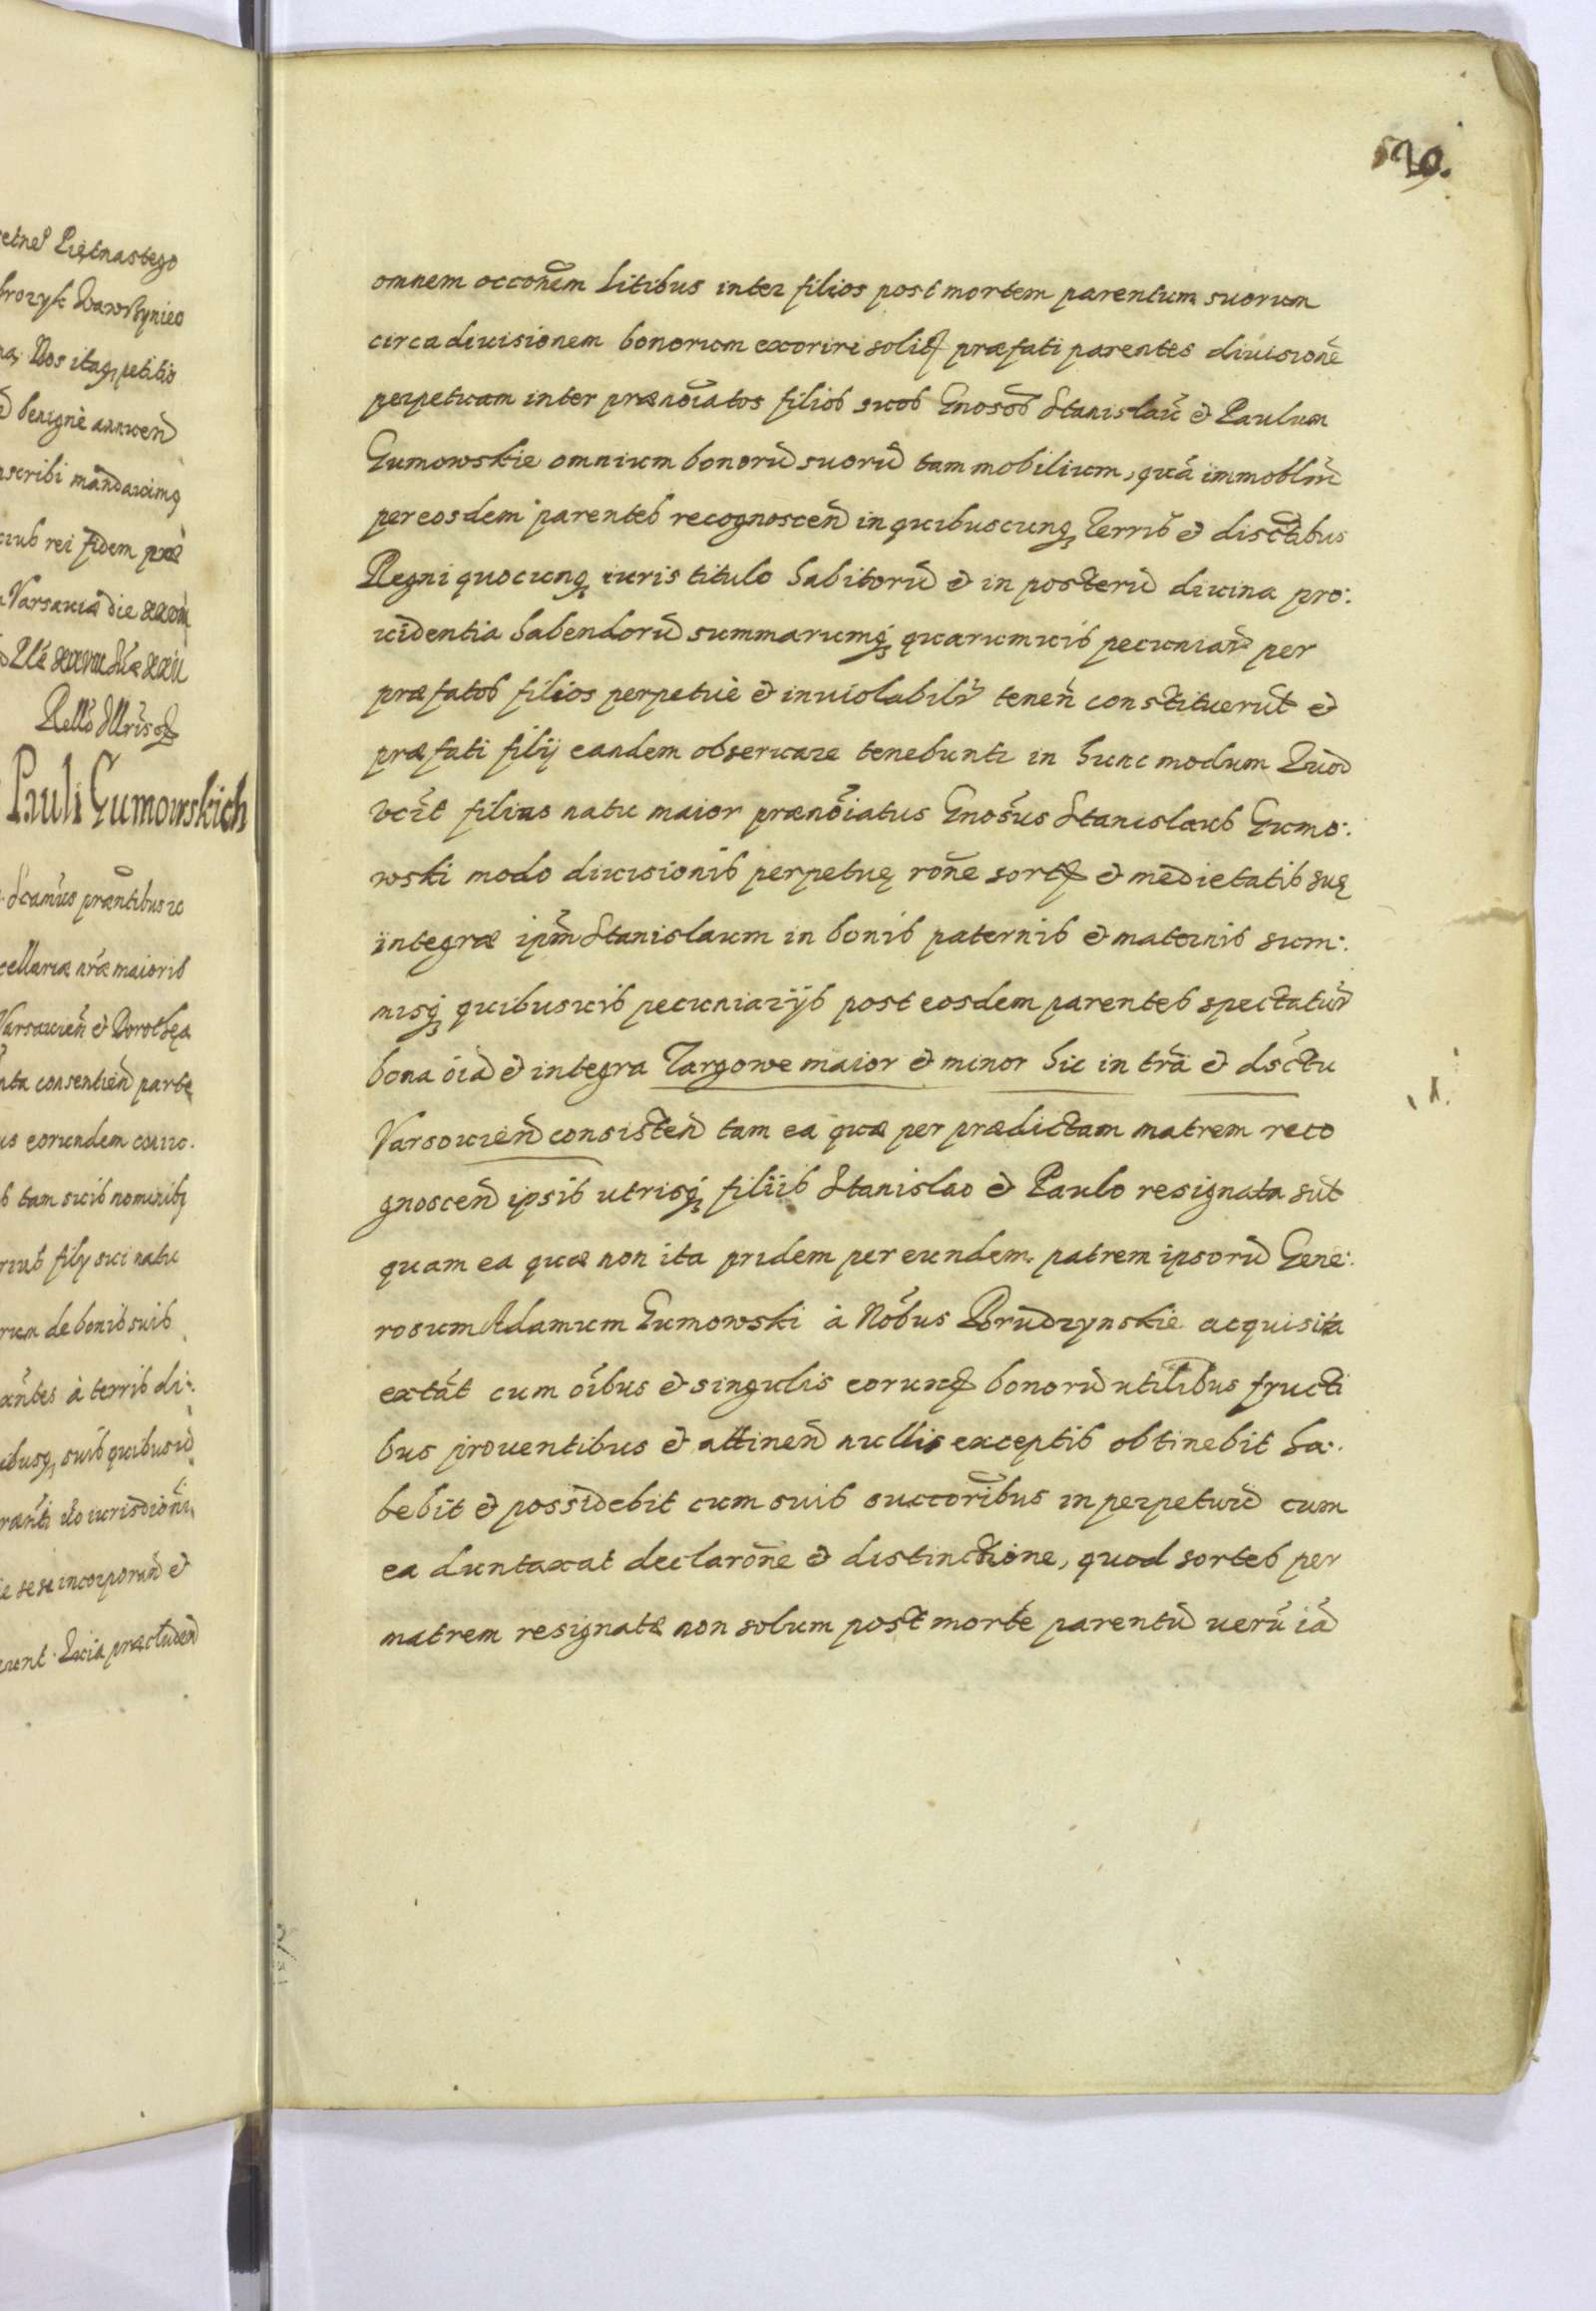 etne Piętnastego
Nos itaq petitio
benignè annuen
scribi mandauimq
rei fidem præ
Varsauiæ die
Pauli Gumowskich
prntibus
cellariæ nræ maioris
Varsauien & Dorothęa
consentien parte
eorundem
tam suis nominibq
filij sui natu
de bonis suis
à terris di:
ibusq suis quibusuis
sese incorporan &
præcluden
529.
omnem occonem litibus inter filios post mortem parentum suorum
circa diuisionem bonorum exoriri solitq præfati parentes diuisionẽ
perpetuam inter prænoiatos filios suos Gnosos Stanislaũ & Paulum
Gumowskie omnium bonorũ suorũ tam mobilium, quã immobliũ
per eosdem parentes recognoscen in quibuscunq Terris & disctibus
Regni quocunq iuris titulo habitorũ & in posterũ diuina pro:
uidentia habendorũ summarumq quarumuis pecuniar per
præfatos filios perpetuè & inuiolabilr tenen constituerũt &
præfati filij eandem obseruare tenebuntr in hunc modum Quod
vcit filius natu maior prænoiatus Gnosus Stanislaus Gumo:
wski modo diuisionis perpetuę rone sortq & medietatis suę
integræ ipm Stanislaum in bonis paternis & maternis sum:
misq quibusuis pecuniarijs post eosdem parentes spectatur
bona oia & integra Targowe maior & minor hic in tra & dsctu
Varsouien consisten tam ea quæ per prædictam matrem reco
gnoscen ipsis utrisq filiis Stanislao & Paulo resignata sũt
quam ea quæ non ita pridem per eundem patrem ipsorũ Gene:
rosum Adamum Gumowski à Nobus Brudzynskie acquisita
extãt cum oibus & singulis eorumq bonorũ utilibus fructi
bus prouentibus & attinen nullis exceptis obtinebit ha:
bebit & possidebit cum suis succoribus in perpetuũ cum
ea duntaxat declarone & distinctione, quod sortes per
matrem resignatæ non solum post mortẽ parentũ uerũ iã